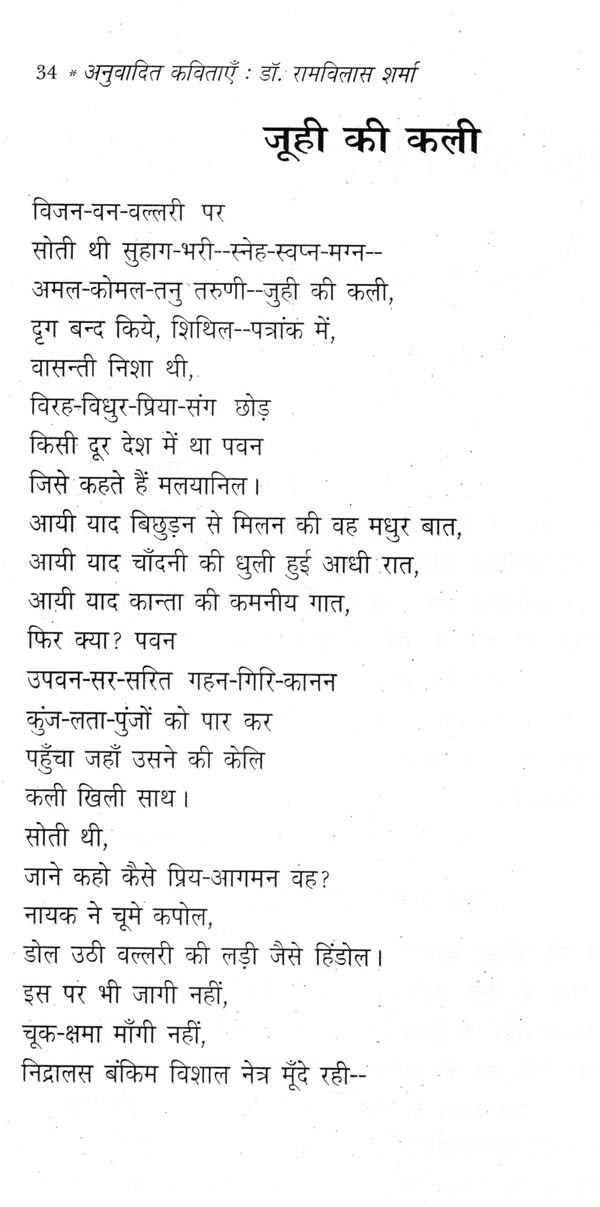 34 * अनुवादित कविताएँ : डॉ. रामविलास शर्मा
जूही की कली
विजन-वन-वल्लरी पर
सोती थी सुहाग-भरी--स्नेह-स्वप्न-मग्न--
अमल-कोमल-तनु तरुणी--जुही की कली,
दृग बन्द किये, शिथिल--पत्रांक में,
वासन्ती निशा थी,
विरह-विधुर-प्रिया-संग छोड़
किसी दूर देश में था पवन
जिसे कहते हैं मलयानिल।
आयी याद बिछुड़न से मिलन की वह मधुर बात,
आयी याद चाँदनी की धुली हुई आधी रात,
आयी याद कान्ता की कमनीय गात,
फिर क्या? पवन
उपवन-सर-सरित गहन-गिरि-कानन
कुंज-लता-पुंजों को पार कर
पहुँचा जहाँ उसने की केलि
कली खिली साथ।
सोती थी,
जाने कहो कैसे प्रिय-आगमन वह?
नायक ने चूमे कपोल,
डोल उठी वल्लरी की लड़ी जैसे हिंडोल।
इस पर भी जागी नहीं,
चूक-क्षमा माँगी नहीं,
निद्रालस बंकिम विशाल नेत्र मूँदे रही--